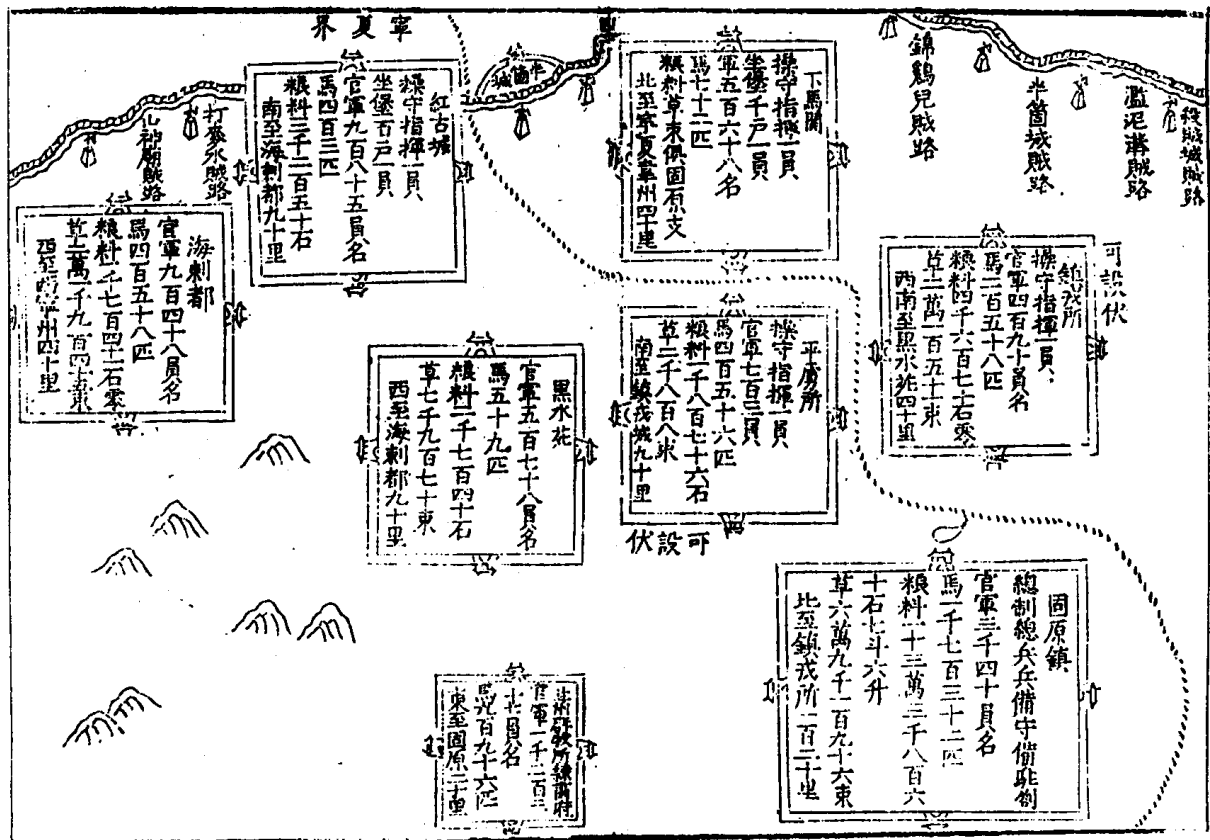 寧夏界
半箇城
錦雞兒賊路
半箇城賊路
濫泥溝賊路
城賊路
打麥水賊路
山神廟賊路
下馬関
操守指揮一員
坐堡千戶一員
軍五百六十八名
馬七十二匹
粮料草束俱固原支
北至寧夏韋州四十里
紅古城
操守指揮一員
坐堡百戶一員
官軍九百八十五員名
馬四百三匹
粮料三千二百五十石
南至海剌都九十里
海剌都
官軍九百四十八員名
馬四百五十八匹
粮料一千七百四十二石零
草二萬一千九百四十束
西至西安州四十里
可設伏
鎮戎所
操守指揮一員
官軍四百九十員名
馬二百五十八匹
粮料四千六百七十石零
草二萬一百五十束
西南至黑水苑四十里
平虜所
操守指揮一員
官軍七百三員
馬四百五十六匹
粮料一千八百七十六石
草二千八百八束
南至鎮戎城九十里
可設伏
黑水苑
官軍五百七十八員名
馬五十九匹
粮料二千七百四十石
草七千九百七十束
西至海剌都九十里
固原鎮
總制總兵兵備守備駐劄
官軍三千四十員名
馬一千七百三十二匹
粮料一十三萬三千八百六
十石七斗六升
草六萬九千一百九十六束
北至鎮戎所一百二十里
官軍一千二百三
十七員名
馬九百九十六匹
東至固原二十里